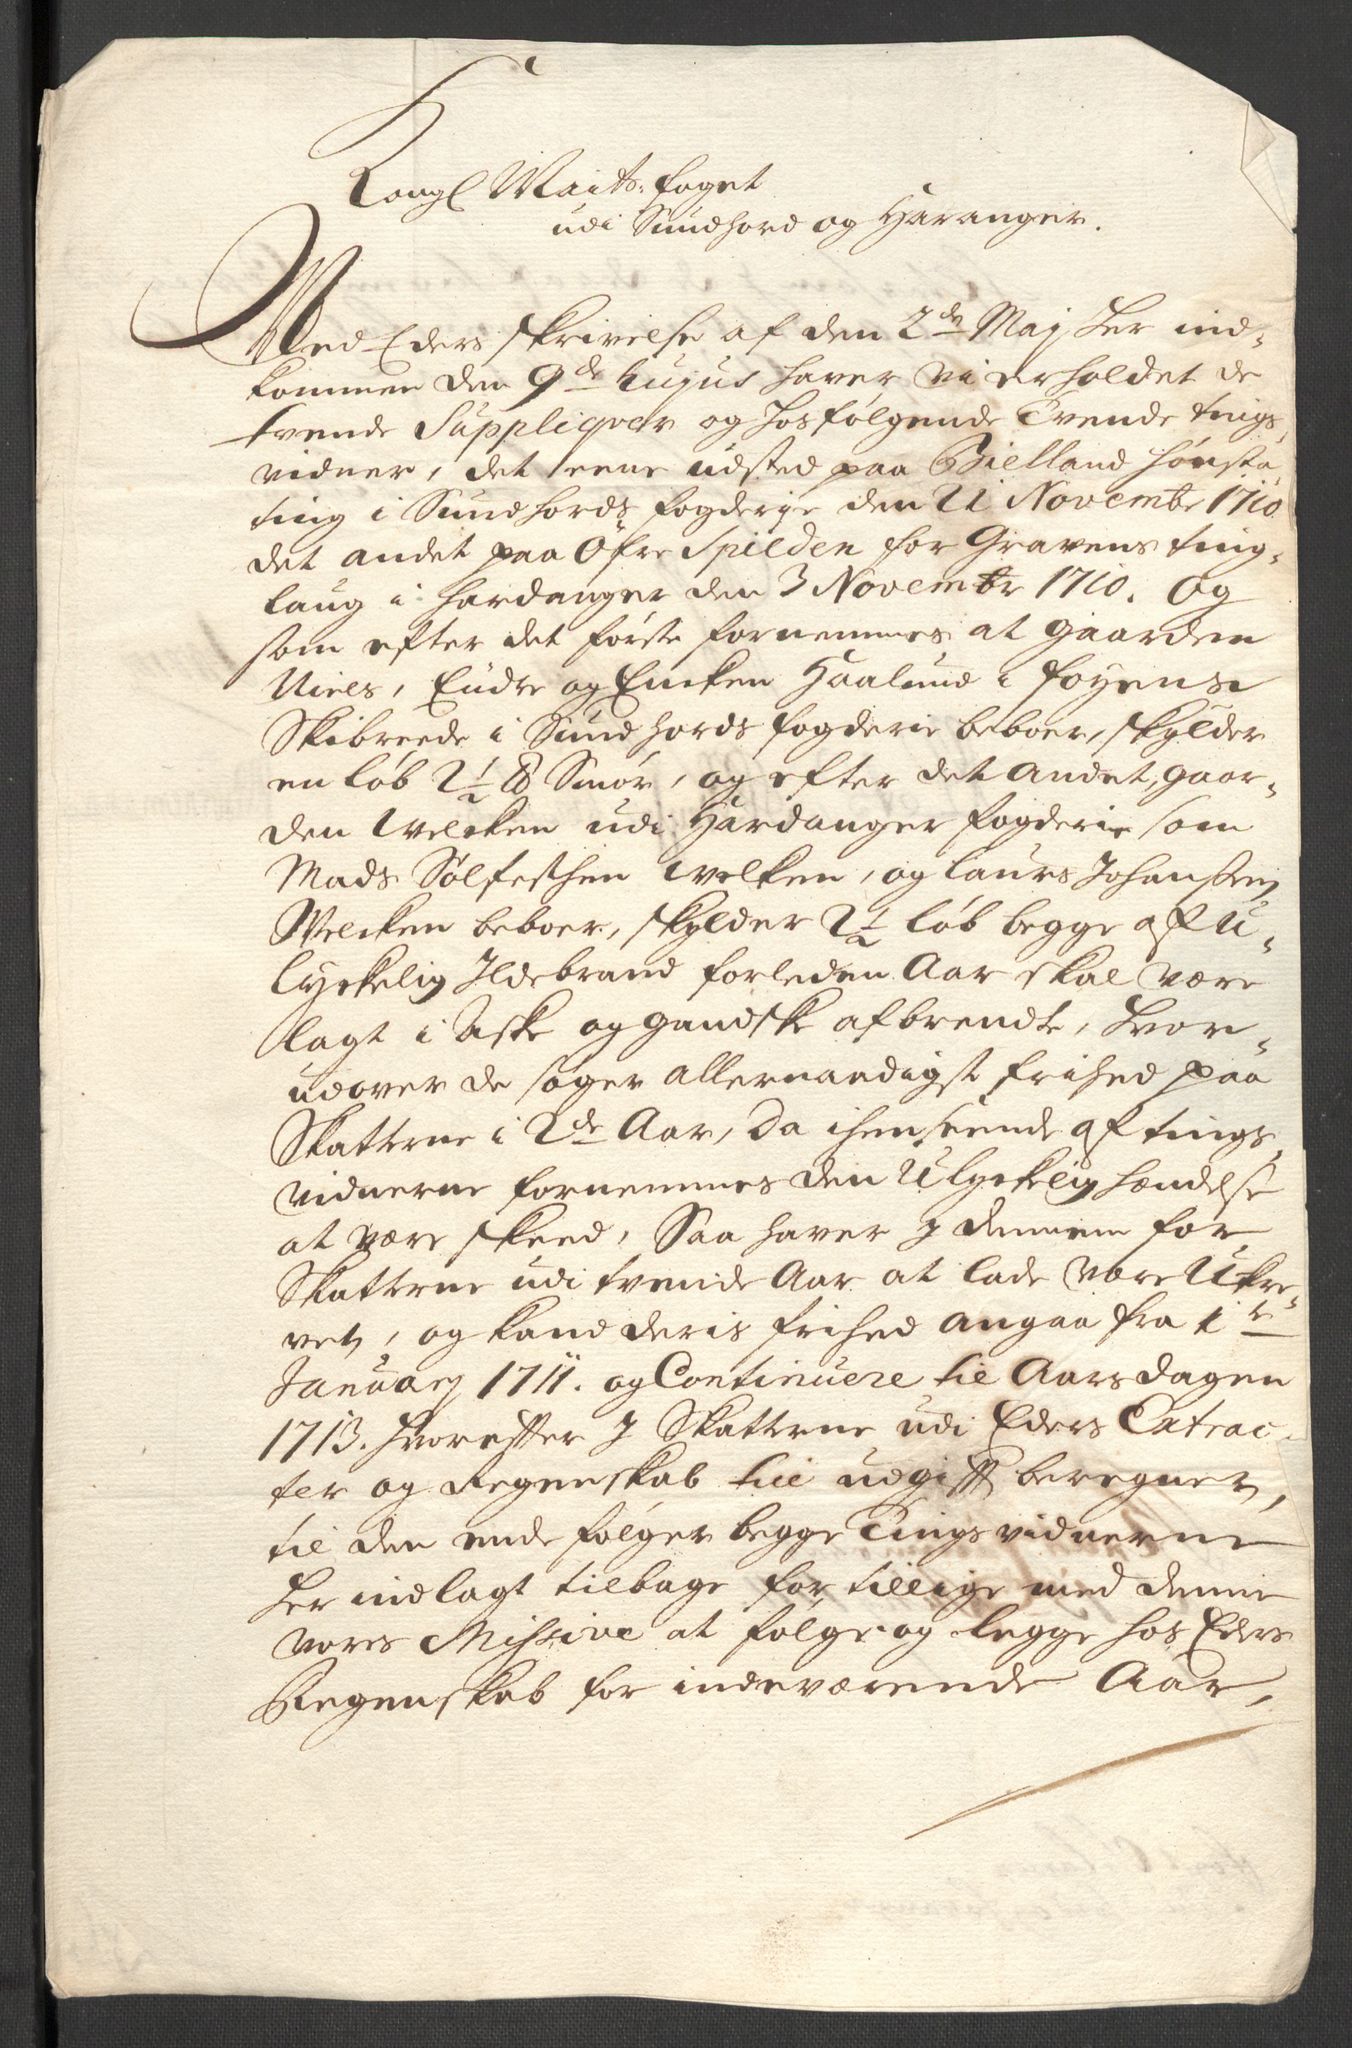 Kongl Maits: foget
udi Sundhord og Haranger.
Med Eders skrivelse af den 2de Maj her ind-
kommen den 9de hujus haver vi erholdet de
tvende Suppliqver og hosfølgende Tvende tings
vidner, det eene udsted paa Bielland høusta
ting i Sundhords fogderie den 21 Novembr 1710
det andet paa Øfre Spilden for Gravens ting-
laug i Hardanger den 3 Novembr 1710. Og
som efter det første fornemmes at gaarden
Niels, Endre og Encken Haalund i føyens
Skibreede i Sundhords fogderie beboer, skylder
en løb 2½ ℔ Smør, og efter det andet, gaar-
den Welcken udi Hardanger fogderie som
Mads Sølfesthen Welken, og Laurs Johanssen
Welcken beboer, skylder 2½ løb begge af U-
lyckelig Ildebrand forleden Aar skal være
lagt i Aske og gandske afbrendte, hvor-
udover de søger allernaadigst frihed paa
Skatterne i 2de Aar, Da i henseende af tings
vidnerne fornemmes den Ulyckelig hændelse
at være skeed, Saa haver I dennem for
Skatterne udi tvende Aar at lade være Ukre-
vet, og kand deris frihed angaa fra 1te
Januarj 1711. og Continuere til Aarsdagen
1713. hvorefter I Skatterne udi Eders Extrac-
ter og Regenskab til udgift beregner,
til den ende følger begge Tingsvidnerne
her indlagt tilbage for tillige med denne
vores Missive at følge og legge hos Eders
Regenskab for indeværende Aar,